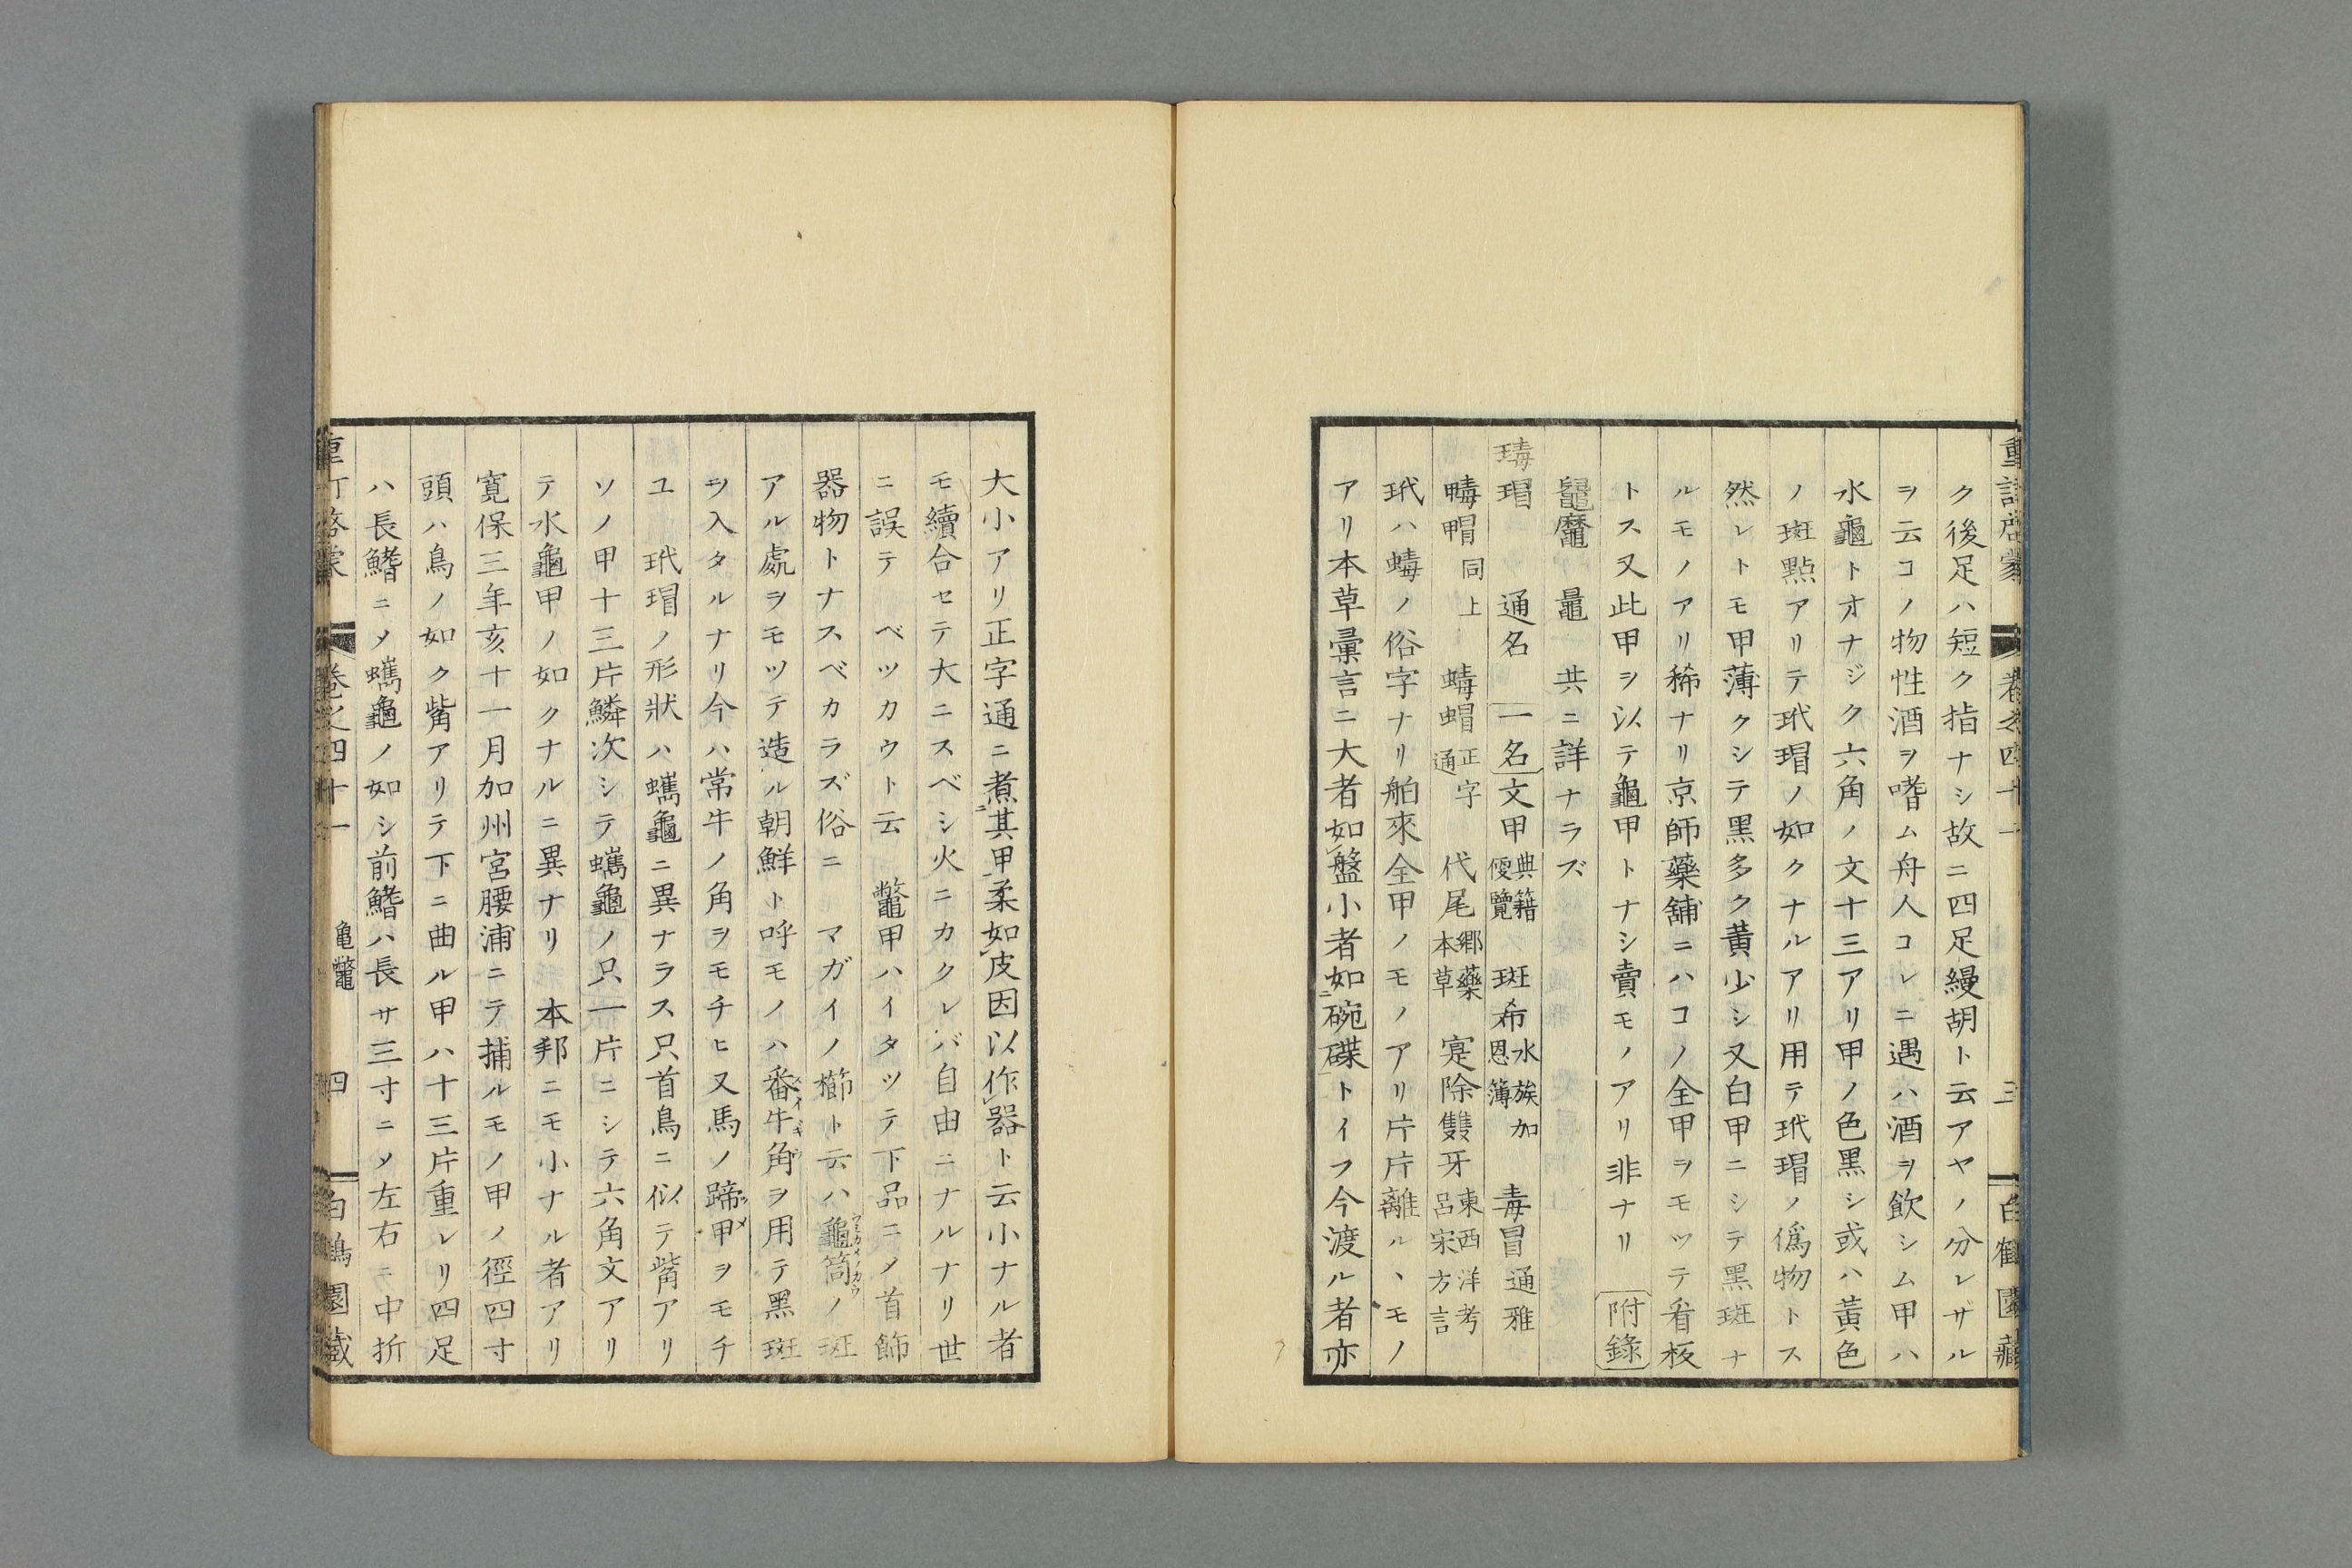 ク後足ハ短ク指ナシ故ニ四足縵胡ト云アヤノ分レザル
ヲ云コノ物性酒ヲ嗜ム舟人コレニ遇ハ酒ヲ飲シム甲ハ
水龜トオナジク六角ノ文十三アリ甲ノ色黒シ或ハ黃色
ノ斑點アリテ玳瑁ノ如クナルアリ用テ玳瑁ノ僞物トス
然レトモ甲薄クシテ黒多ク黃少シ又白甲ニシテ黒斑ナ
ルモノアリ稀ナリ京師藥舖ニハコノ全甲ヲモツテ看板
トス又此甲ヲ以テ龜甲トナシ賣モノアリ非ナリ 附錄
鼉 共ニ詳ナラズ
瑇瑁 通名 一名 文甲 典籍便覽 斑希 水族加恩簿 毒冒 通雅
同上 蝳蝐 正字通 代尾 郷藥本草 寔除雙牙 東西洋考呂宋方言
玳ハ蝳ノ俗字ナリ舶來全甲ノモノアリ片片離ル、モノ
アリ本草彙言ニ大者如盤小者如碗碟トイフ今渡ル者亦
重訂啓蒙 卷之四十一 三 白鶴園藏
大小アリ正字通ニ煮其甲柔如皮因以作器ト云小ナル者
モ續合セテ大ニスベシ火ニカクレバ自由ニナルナリ世
ニ誤テ ベツカウト云 鼈甲ハイタツテ下品ニメ首飾
器物トナスベカラズ俗ニ マガイノ櫛ト云ハ龜筒ノ斑
アル處ヲモツテ造ル朝鮮ト呼モノハ番牛角ヲ用テ黑斑
ヲ入タルナリ今ハ常牛ノ角ヲモチヒ又馬ノ蹄甲ヲモチ
ユ 玳瑁ノ形狀ハ蠵龜ニ異ナラス只首鳥ニ似テ觜アリ
ソノ甲十三片鱗次シテ蠵龜ノ只一片ニシテ六角文アリ
テ水龜甲ノ如クナルニ異ナリ 本邦ニモ小ナル者アリ
寛保三年亥十一月加州宮腰浦ニテ捕ルモノ甲ノ徑四寸
頭ハ鳥ノ如ク觜アリテ下ニ曲ル甲ハ十三片重レリ四足
ハ長鰭ニメ蠵龜ノ如シ前鰭ハ長サ三寸ニメ左右ニ中折
重訂啓蒙 卷之四十一 龜鼈 四 白鶴園藏